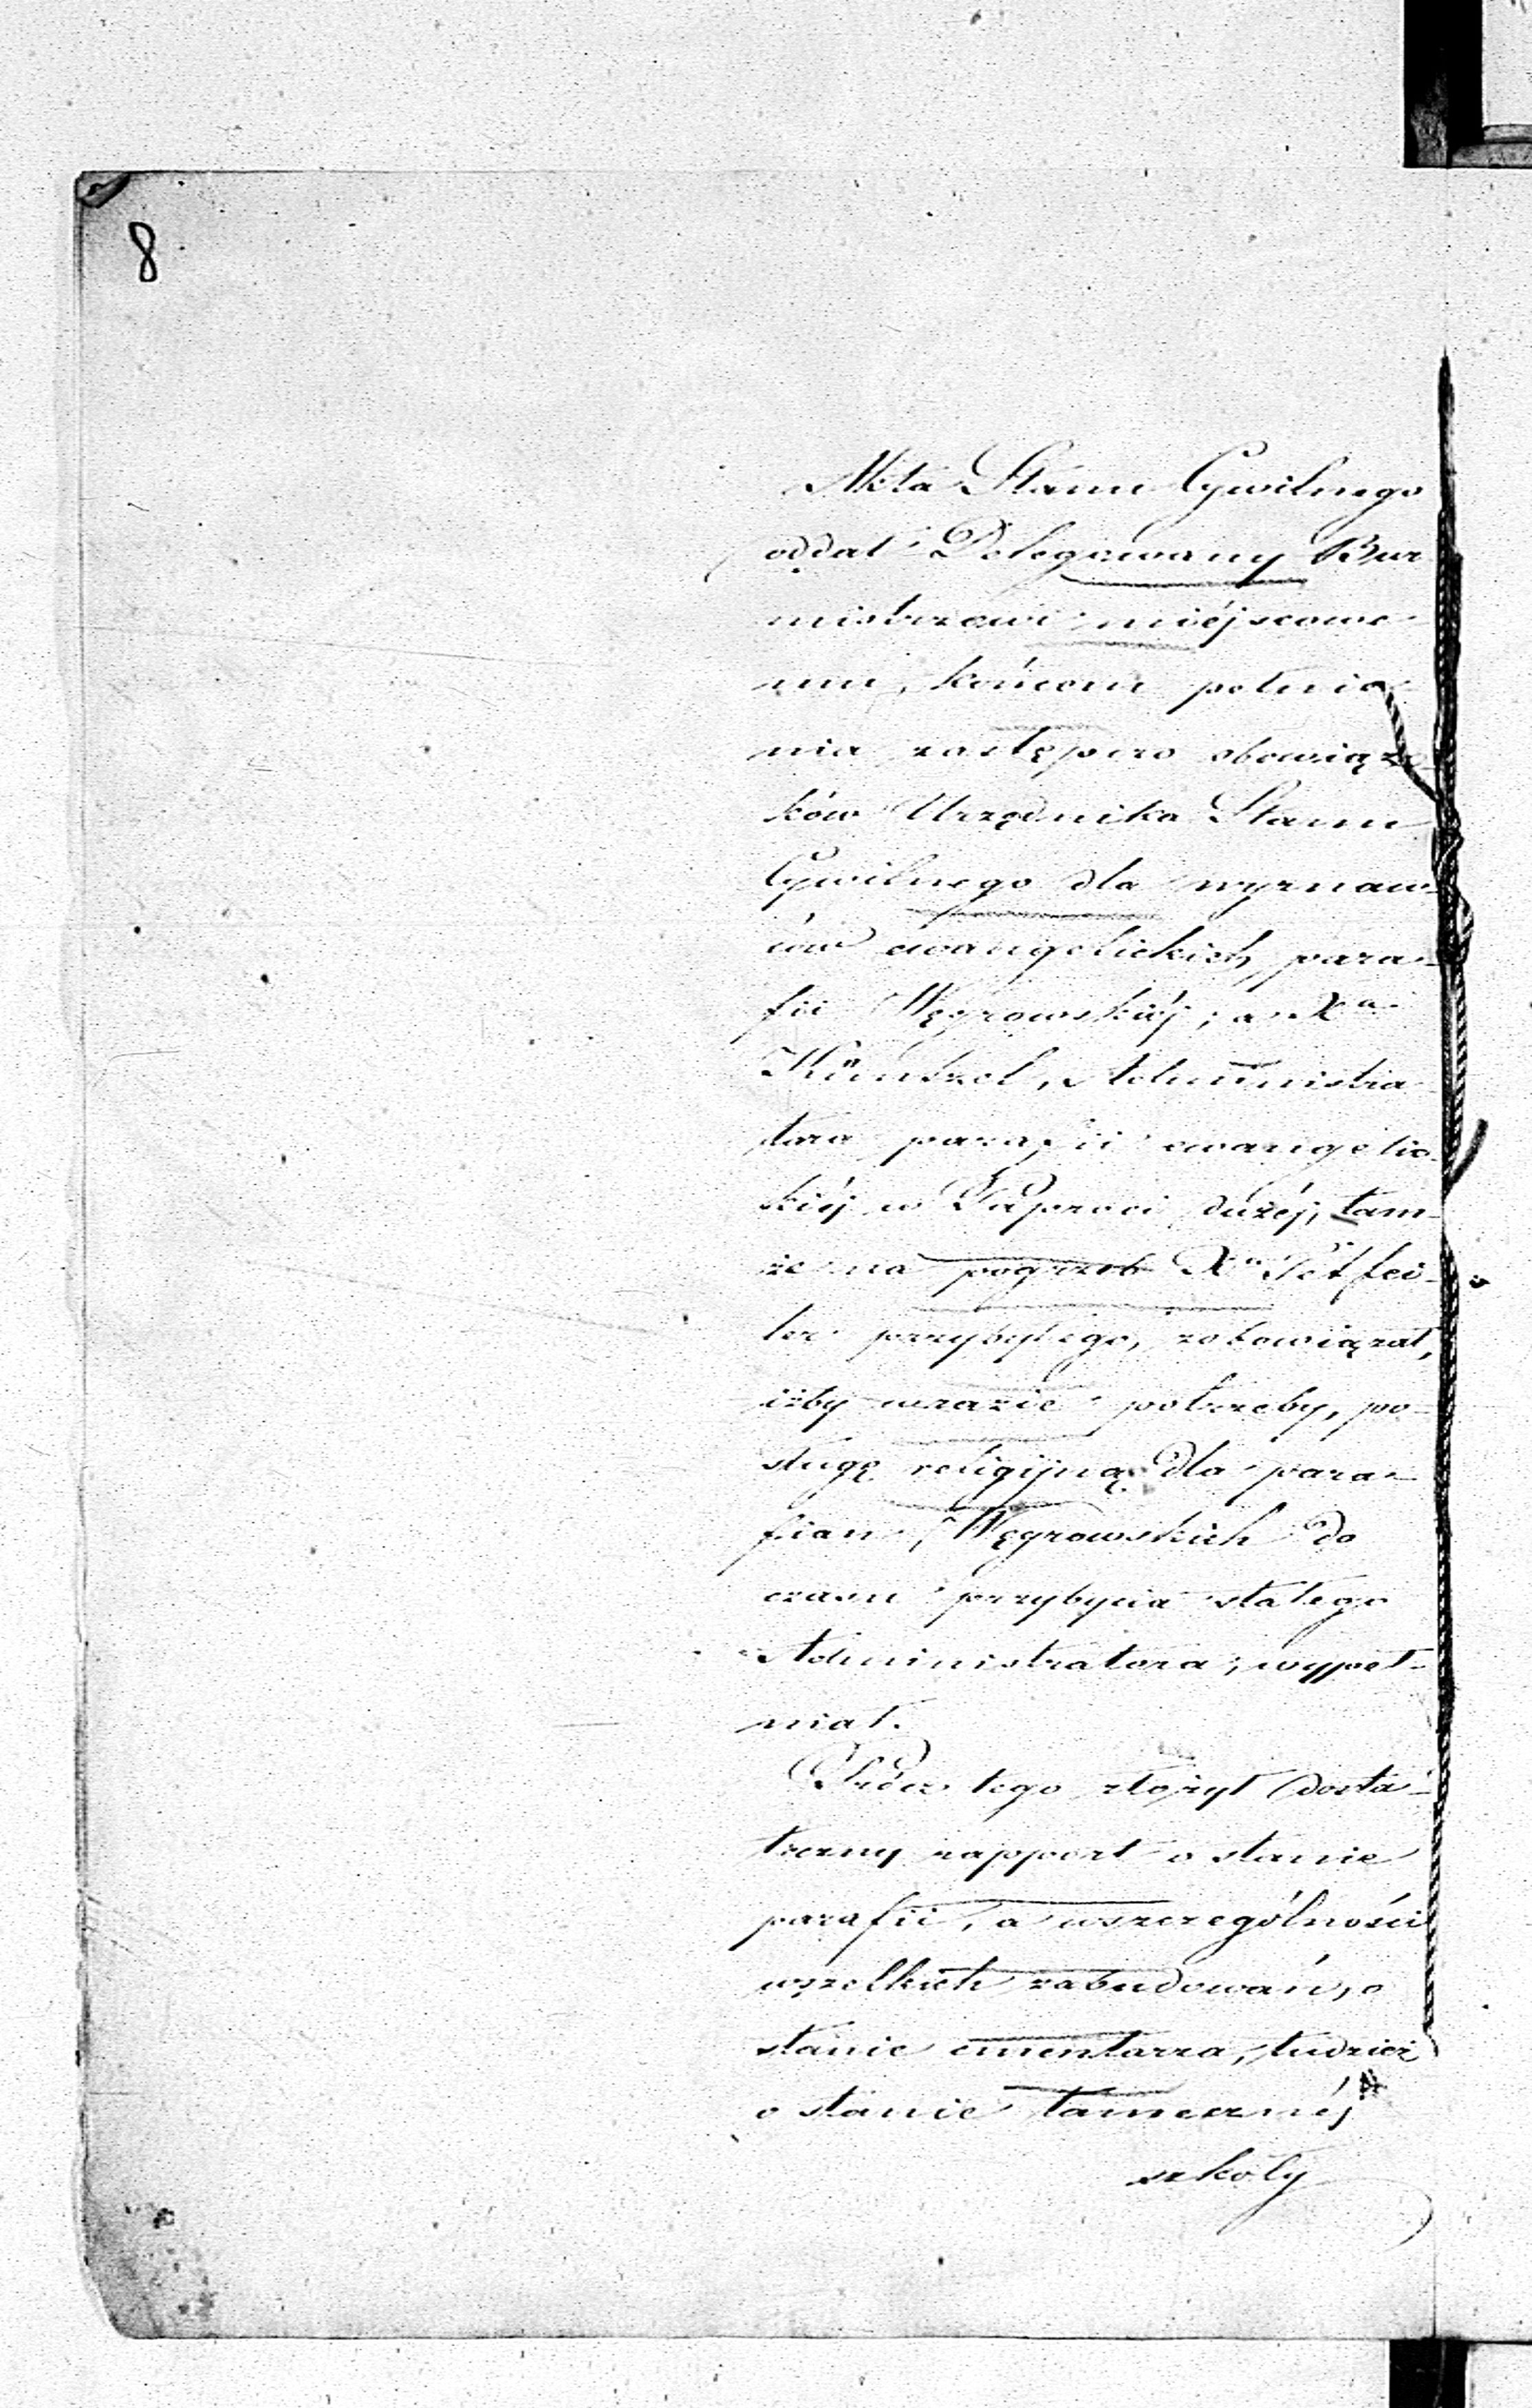 8
Akta Stanu Cywilnego
oddał Delegowany Bur
mistrzowi miéjscowe
mu, końcem pełnie
nia zastępczo obowiąz
ków Urzędnika Stanu
Cywilnego dla wyznaw-
ców ewangelickich para-
fii Węgrowskiéj; a Xa
Administra
tora parafii ewangelic-
kiéj w Paproci dużéj, tam-
że na pogrzeb Xa
przybyłego, zobowiązał,
iżby wrazie potrzeby, po-
sługę religijną dla para-
fian Węgrowskich do
czasu przybycia stałego
Administratora, wypeł-
niał.
Prócz tego złożył dosta-
teczny rapport o stanie
parafii, a wszczególności
wszelkich zabudowań, o
stanie cmentarza, tudzież
o stanie tamecznéj
szkoły